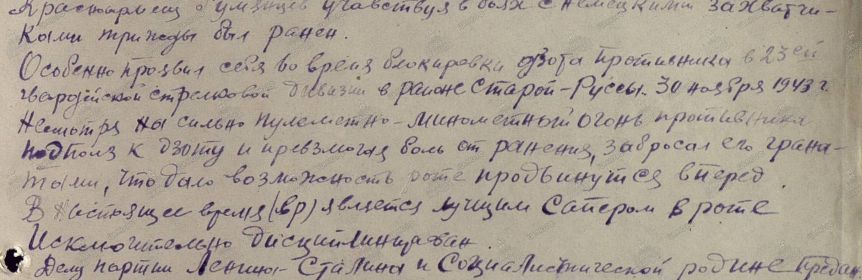 Красноармеец Румянцев участвуя в боях с немецкими захватчи-
ками трижды был ранен.
Особенно проявил себя во время блокировки дзота противника в 23 ей
гвардейской стрелковой дивизии в районе Старой-Руссы. 30 ноября 1943 г.
Несмотря на сильно пулеметно-минометный огонь противника
подполз к дзоту и превзмогая боль от ранения, забросал его грана-
тами, что дало возможность роте продвинутся вперед.
В настоящее время (вр) является лучшим сапером в роте
Исключительно дисциплинирован.
Делу партии Ленина-Сталина и Социалистической родине предан